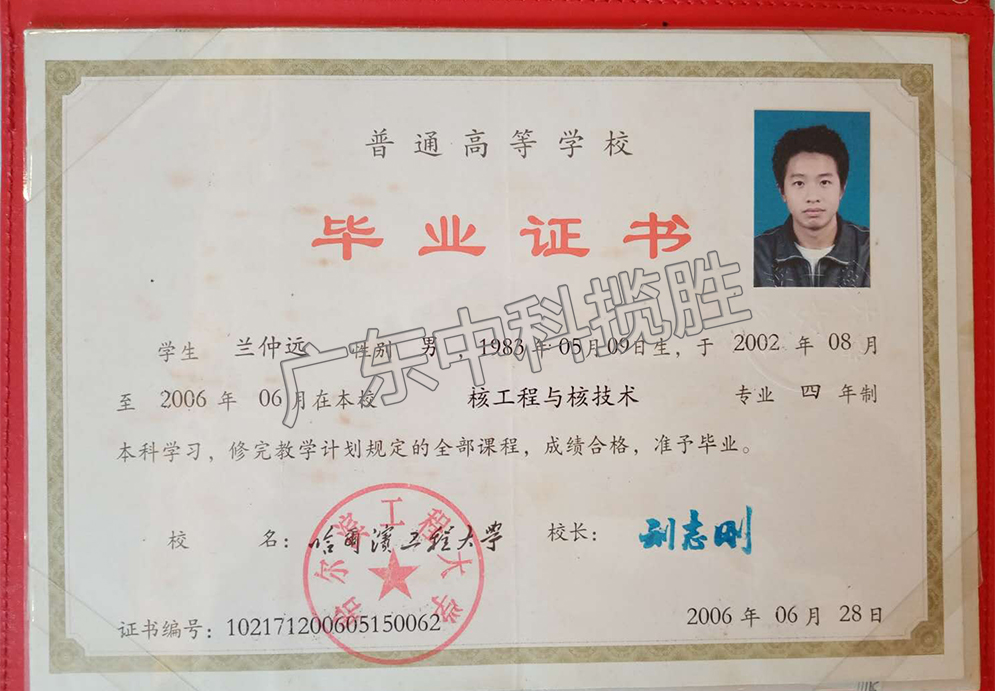 普通高等学校
毕业证书
学生 兰仲远 性别 男,1983年05月09日生,于 2002 年 08 月
至 2006 年 06 月在本校 核工程与核技术 专业 四 年制
本科学习,修完教学计划规定的全部课程,成绩合格,准予毕业。
校 名:哈尔滨工程大学 校长:刘志刚
哈尔滨工程大学
证书编号:102171200605150062 2006 年 06 月 28 日
广东中科揽胜